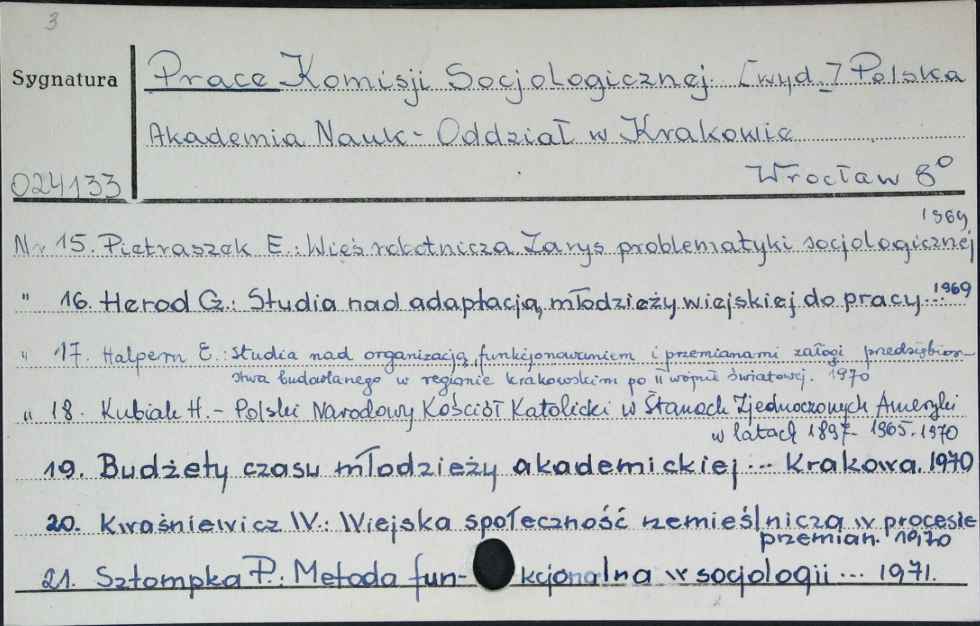 3
Sygnatura
Prace Komisji Socjologicznej. [wyd.] Polska
Akademia Nauk - Oddział w Krakowie
024133
Wrocław 8°
1969
Nr 15. Pietraszek E.: Wieś robotnicza Zarys problematyki socjologicznej
" 16. Herod Cz.: Studia nad adaptacją młodzieży wiejskiej do pracy... 1969
" 17. Halpern E.: Studia nad organizacją, funkcjonowaniem i przemianami załogi przedsiębior-
stwa budowlanego w regionie krakowskim po II wojnie światowej. 1970
" 18. Kubiak H. - Polski Narodowy Kościół Katolicki w Stanach Zjednoczonych Ameryki
w latach 1897-1965. 1970
19. Budżety czasu młodzieży akademickiej ... Krakowa. 1970
20. Kwaśniewicz W.: Wiejska społeczność rzemieślnicza w procesie
przemian. 1970
21. Sztompka P.: Metoda fun- kcjonalna w socjologii ... 1971.